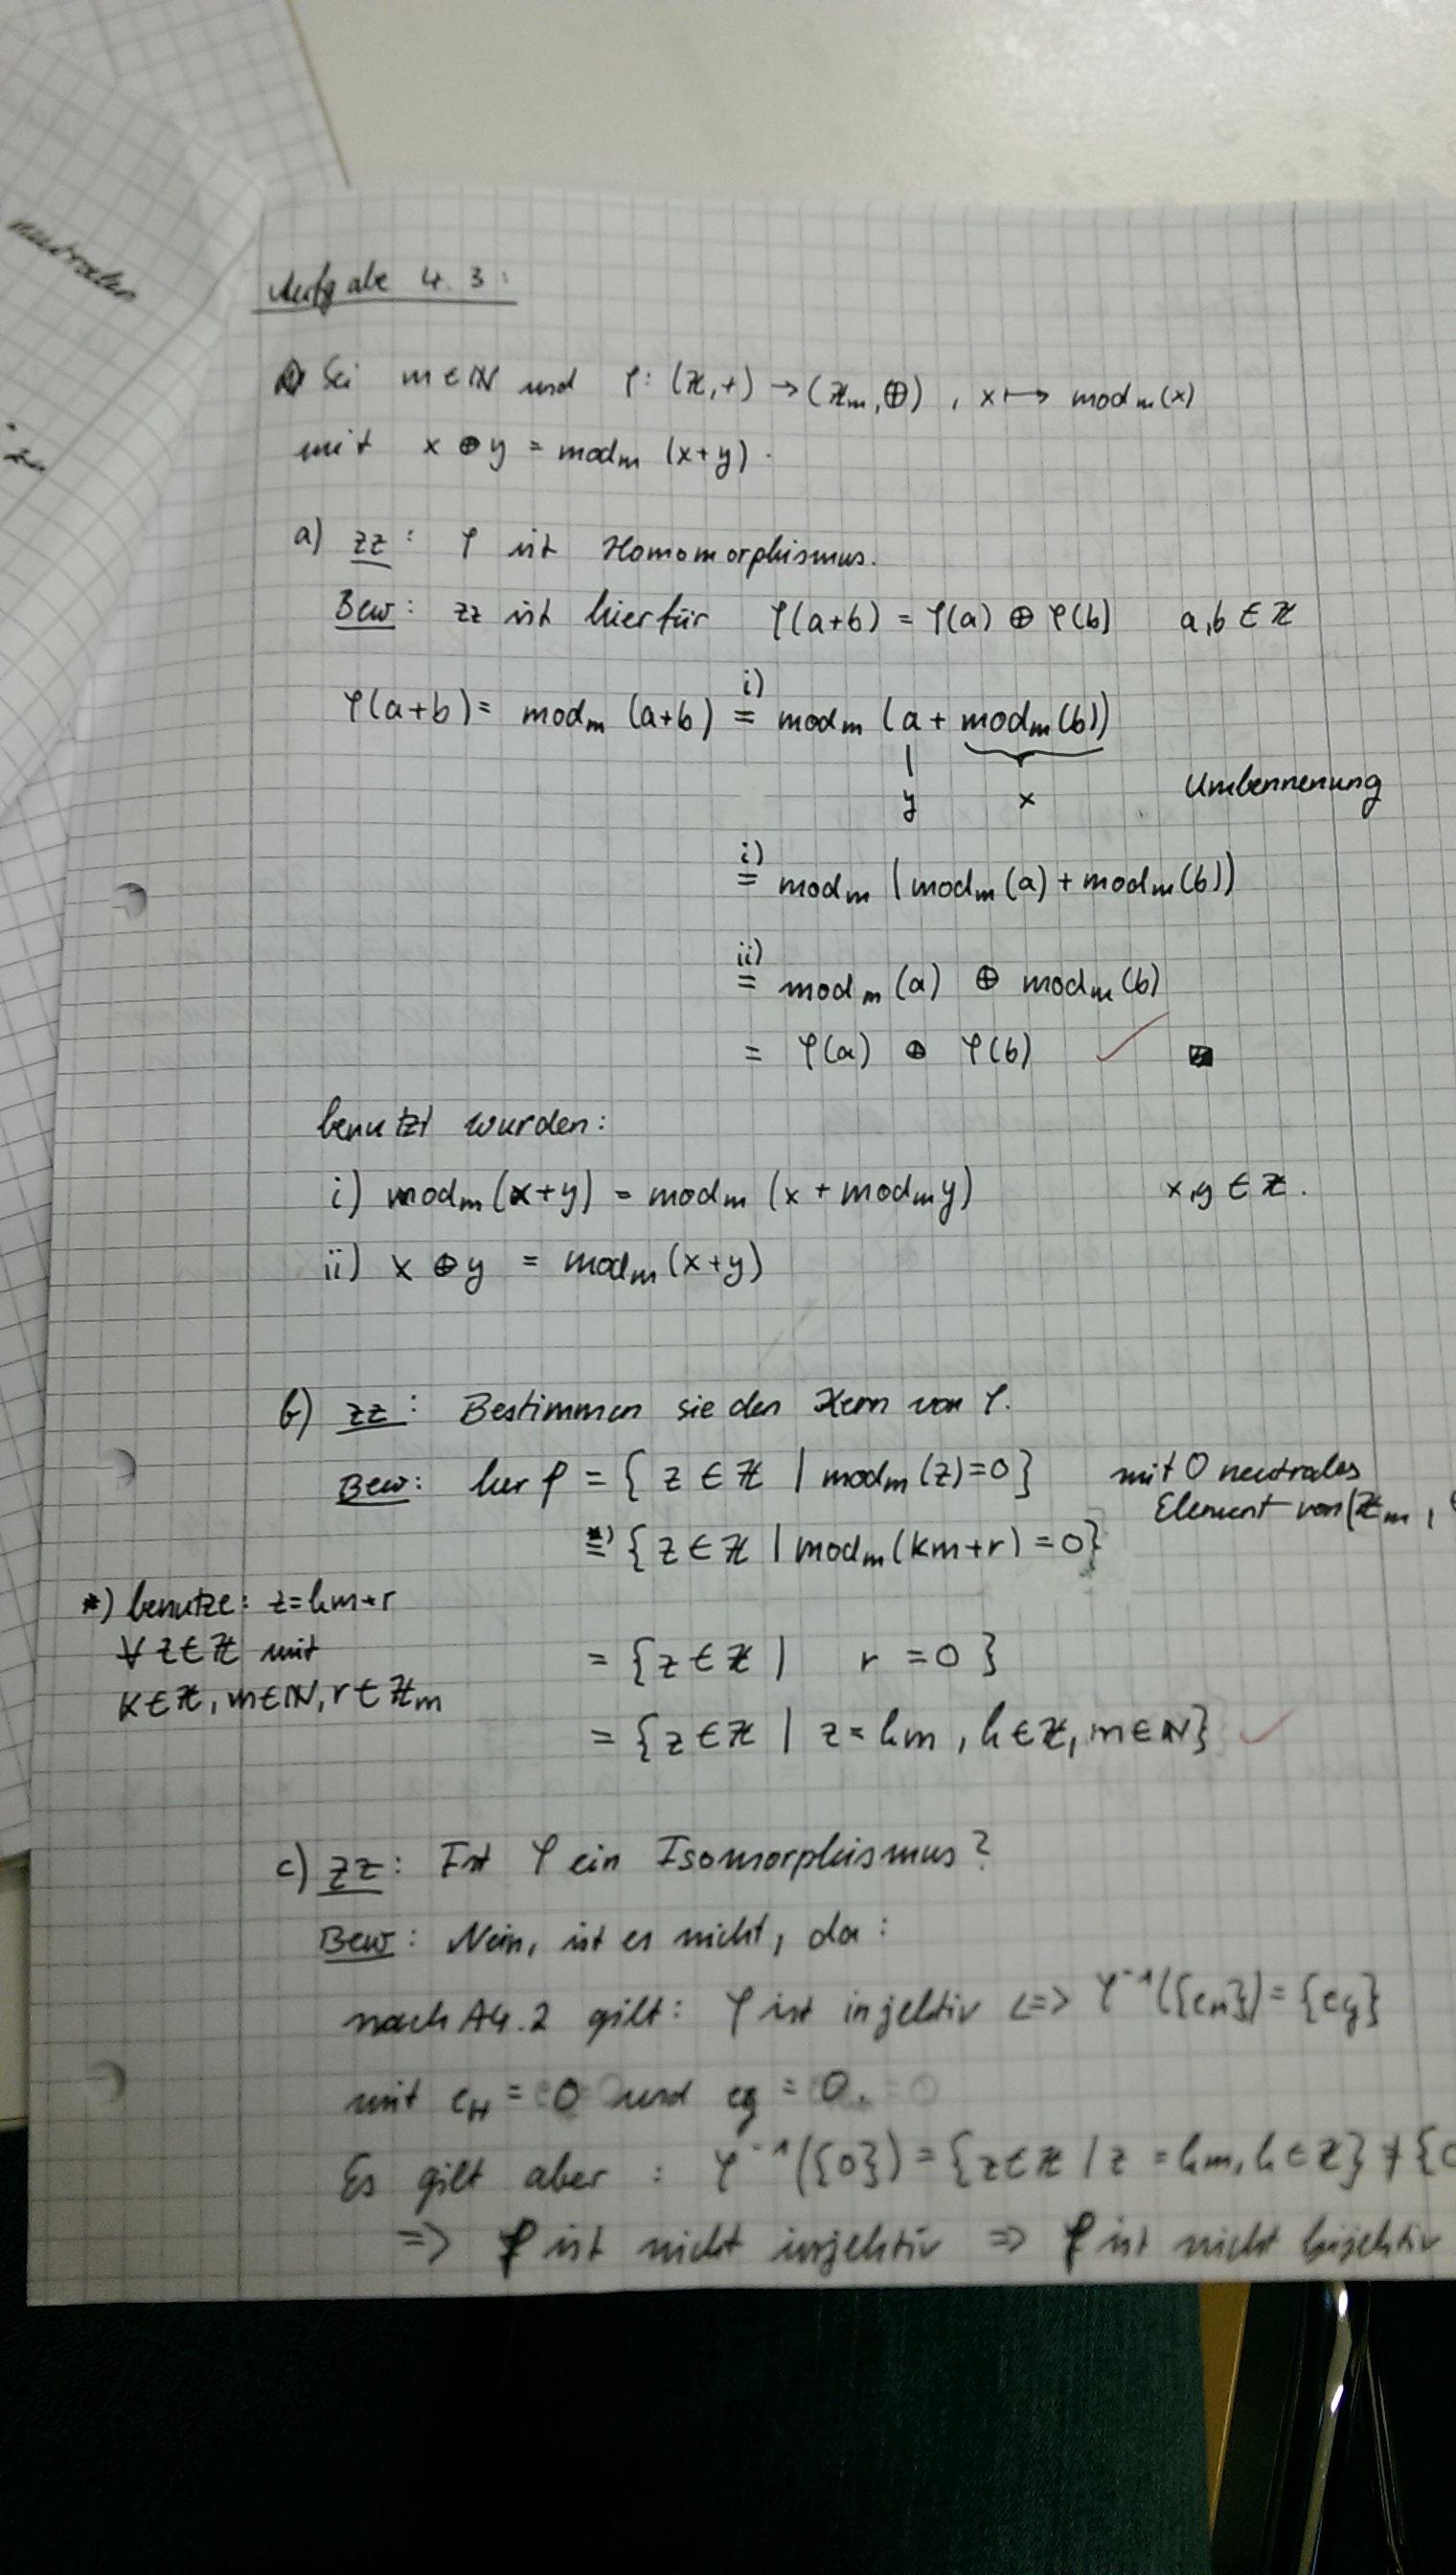 neutrales
Aufgabe 4.3:
Sei m ∈ ℕ und φ: (ℤ,+) → (ℤm,⊕) , x ↦ modm(x)
mit x ⊕ y = modm (x+y).
a) zz: φ ist Homomorphismus.
Bew: zz ist hierfür φ(a+b) = φ(a) ⊕ φ(b) a,b ∈ ℤ
φ(a+b) = modm (a+b) i)= modm (a + modm(b))
y x Umbennenung
i)= modm (modm(a) + modm(b))
ii)= modm(a) ⊕ modm(b)
= φ(a) ⊕ φ(b) ✓
benutzt wurden:
i) modm(x+y) = modm (x + modm y) x,y ∈ ℤ.
ii) x ⊕ y = modm(x+y)
b) zz: Bestimmen sie den Kern von φ.
Bew: ker φ = { z ∈ ℤ | modm(z)=0 } mit 0 neutrales
Element von (ℤm,
*)= { z ∈ ℤ | modm(km+r) = 0 }
*) benutze: z=km+r
∀ z ∈ ℤ mit
k ∈ ℤ, m ∈ ℕ, r ∈ ℤm
= { z ∈ ℤ | r = 0 }
= { z ∈ ℤ | z = km , k ∈ ℤ, m ∈ ℕ } ✓
c) zz: Ist φ ein Isomorphismus?
Bew: Nein, ist es nicht, da:
nach A4.2 gilt: φ ist injektiv <=> φ⁻¹({eH}) = {eg}
mit eH = 0 und eg = 0.
Es gilt aber : φ⁻¹({0}) = { z ∈ ℤ | z = km, k ∈ ℤ } ≠ {
=> φ ist nicht injektiv => φ ist nicht bijektiv